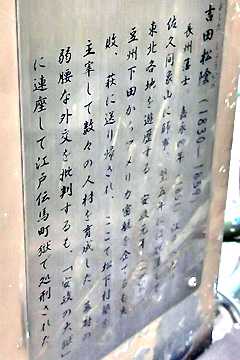 吉田松陰（1830－1859）
長州藩士 嘉永四年
佐久間象山に師事
東北各地を遊歴する 安政元年
豆州下田からアメリカ密航を企てるも失
敗、萩に送り帰され、ここで松下村塾を
主宰して数々の人材を育成した 幕府の
弱腰な外交を批判するも、「安政の大獄」
に連座して江戸伝馬町獄で処刑された